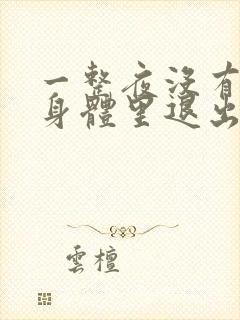 一整夜沒有
身體里退出
雲檀